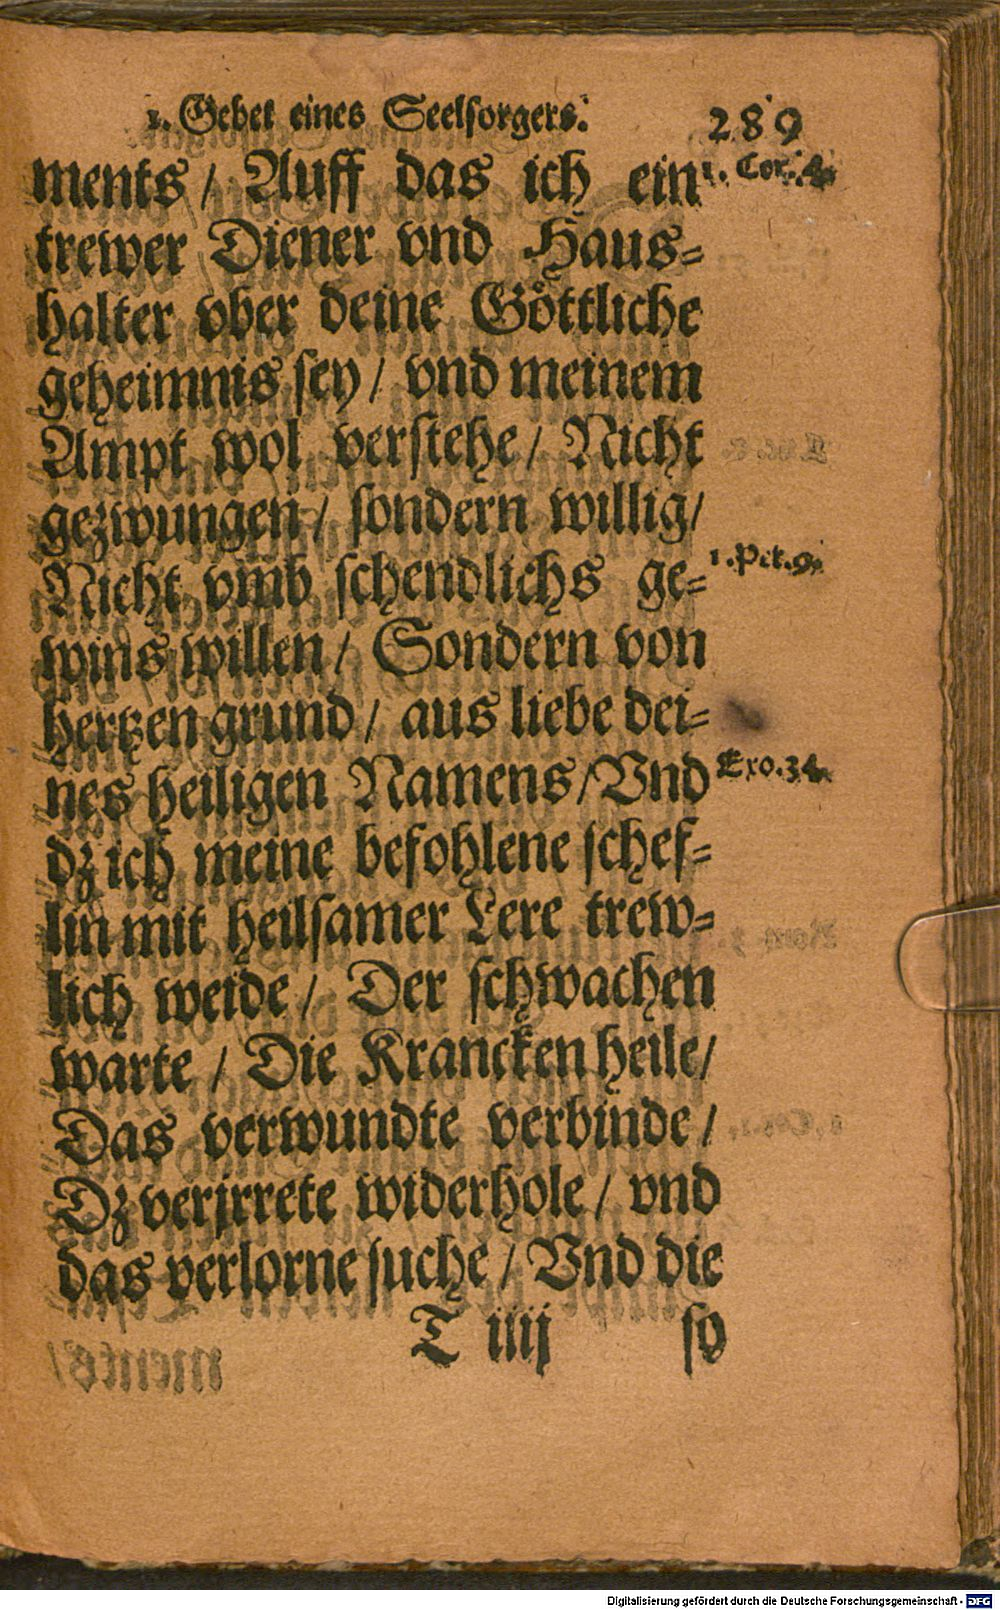 1. Gebet eines Seelsorgers. 289
ments / Auff das ich ein
1. Cor. 4.
trewer Diener vnd Haus⸗
halter vber deine Göttliche
geheimnis sey / vnd meinem
Ampt wol verstehe / Nicht
gezwungen / sondern willig /
Nicht vmb schendlichs ge⸗
1. Pet. 9.
wins willen / Sondern von
hertzen grund / aus liebe dei⸗
nes heiligen Namens / Vnd
Exo. 34.
dz ich meine befohlene schef⸗
lin mit heilsamer Lere trew⸗
lich weide / Der schwachen
warte / Die Krancken heile /
Das verwundte verbinde /
Dz verjrrete widerhole / vnd
das verlorne suche / Vnd die
T iiij so
Digitalisierung gefördert durch die Deutsche Forschungsgemeinschaft - DFG